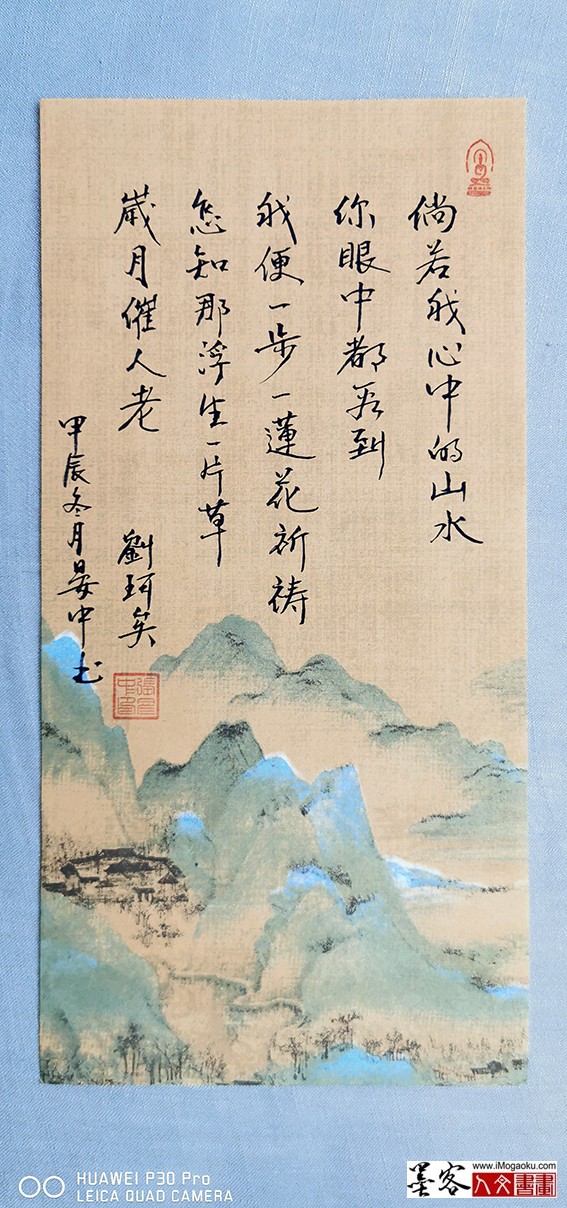 倘若我心中的山水
你眼中都看到
我便一步一蓮花祈祷
怎知那浮生一片草
歲月催人老
劉珂矣
甲辰冬月晏中书
HUAWEI P30 Pro
LEICA QUAD CAMERA
墨客
www.iMogaoku.com
人文書畫